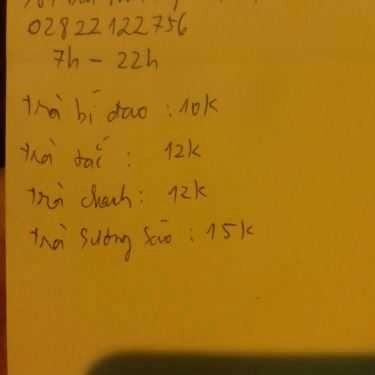 02822122756
7h - 22h
trà bí đao : 10k
trà tắc : 12k
trà chanh : 12k
trà sương sáo : 15k